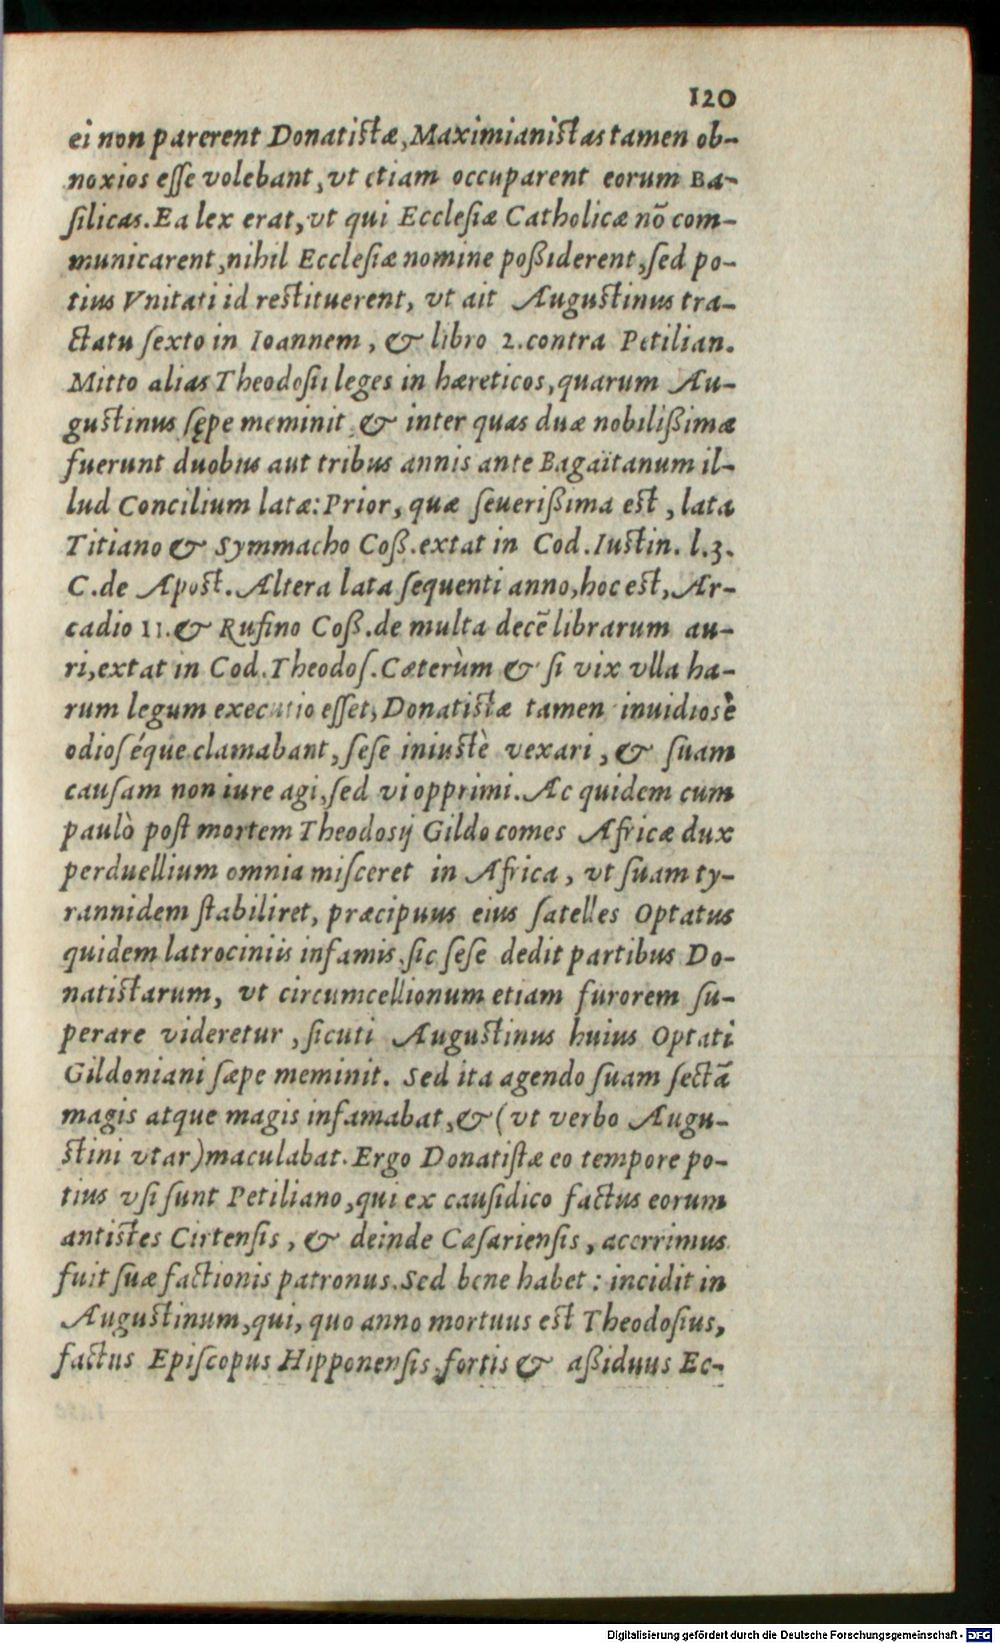 120
ei non parerent Donatistæ, Maximianistas tamen ob-
noxios esse volebant, vt etiam occuparent eorum Ba-
silicas. Ea lex erat, vt qui Ecclesiæ Catholicæ nõ com-
municarent, nihil Ecclesiæ nomine poßiderent, sed po-
tius Vnitati id restituerent, vt ait Augustinus tra-
ctatu sexto in Ioannem, & libro 2. contra Petilian.
Mitto alias Theodosii leges in hæreticos, quarum Au-
gustinus sępe meminit, & inter quas duæ nobilißimæ
fuerunt duobus aut tribus annis ante Bagaïtanum il-
lud Concilium latæ: Prior, quæ seuerißima est, lata
Titiano & Symmacho Coß. extat in Cod. Iustin. l.3.
C. de Apost. Altera lata sequenti anno, hoc est, Ar-
cadio 11. & Rufino Coß. de multa decẽ librarum au-
ri, extat in Cod. Theodos. Cæterùm & si vix vlla ha-
rum legum executio esset, Donatistæ tamen inuidiosè
odioséque clamabant, sese iniustè vexari, & suam
causam non iure agi, sed vi opprimi. Ac quidem cum
paulò post mortem Theodosij Gildo comes Africæ dux
perduellium omnia misceret in Africa, vt suam ty-
rannidem stabiliret, præcipuus eius satelles Optatus
quidem latrociniis infamis, sic sese dedit partibus Do-
natistarum, vt circumcellionum etiam furorem su-
perare videretur, sicuti Augustinus huius Optati
Gildoniani sæpe meminit. Sed ita agendo suam sectã
magis atque magis infamabat, & (vt verbo Augu-
stini vtar) maculabat. Ergo Donatistæ eo tempore po-
tius vsi sunt Petiliano, qui ex causidico factus eorum
antistes Cirtensis, & deinde Cæsariensis, acerrimus
fuit suæ factionis patronus. Sed bene habet: incidit in
Augustinum, qui, quo anno mortuus est Theodosius,
factus Episcopus Hipponensis, fortis & aßiduus Ec-
Digitalisierung gefördert durch die Deutsche Forschungsgemeinschaft - DFG